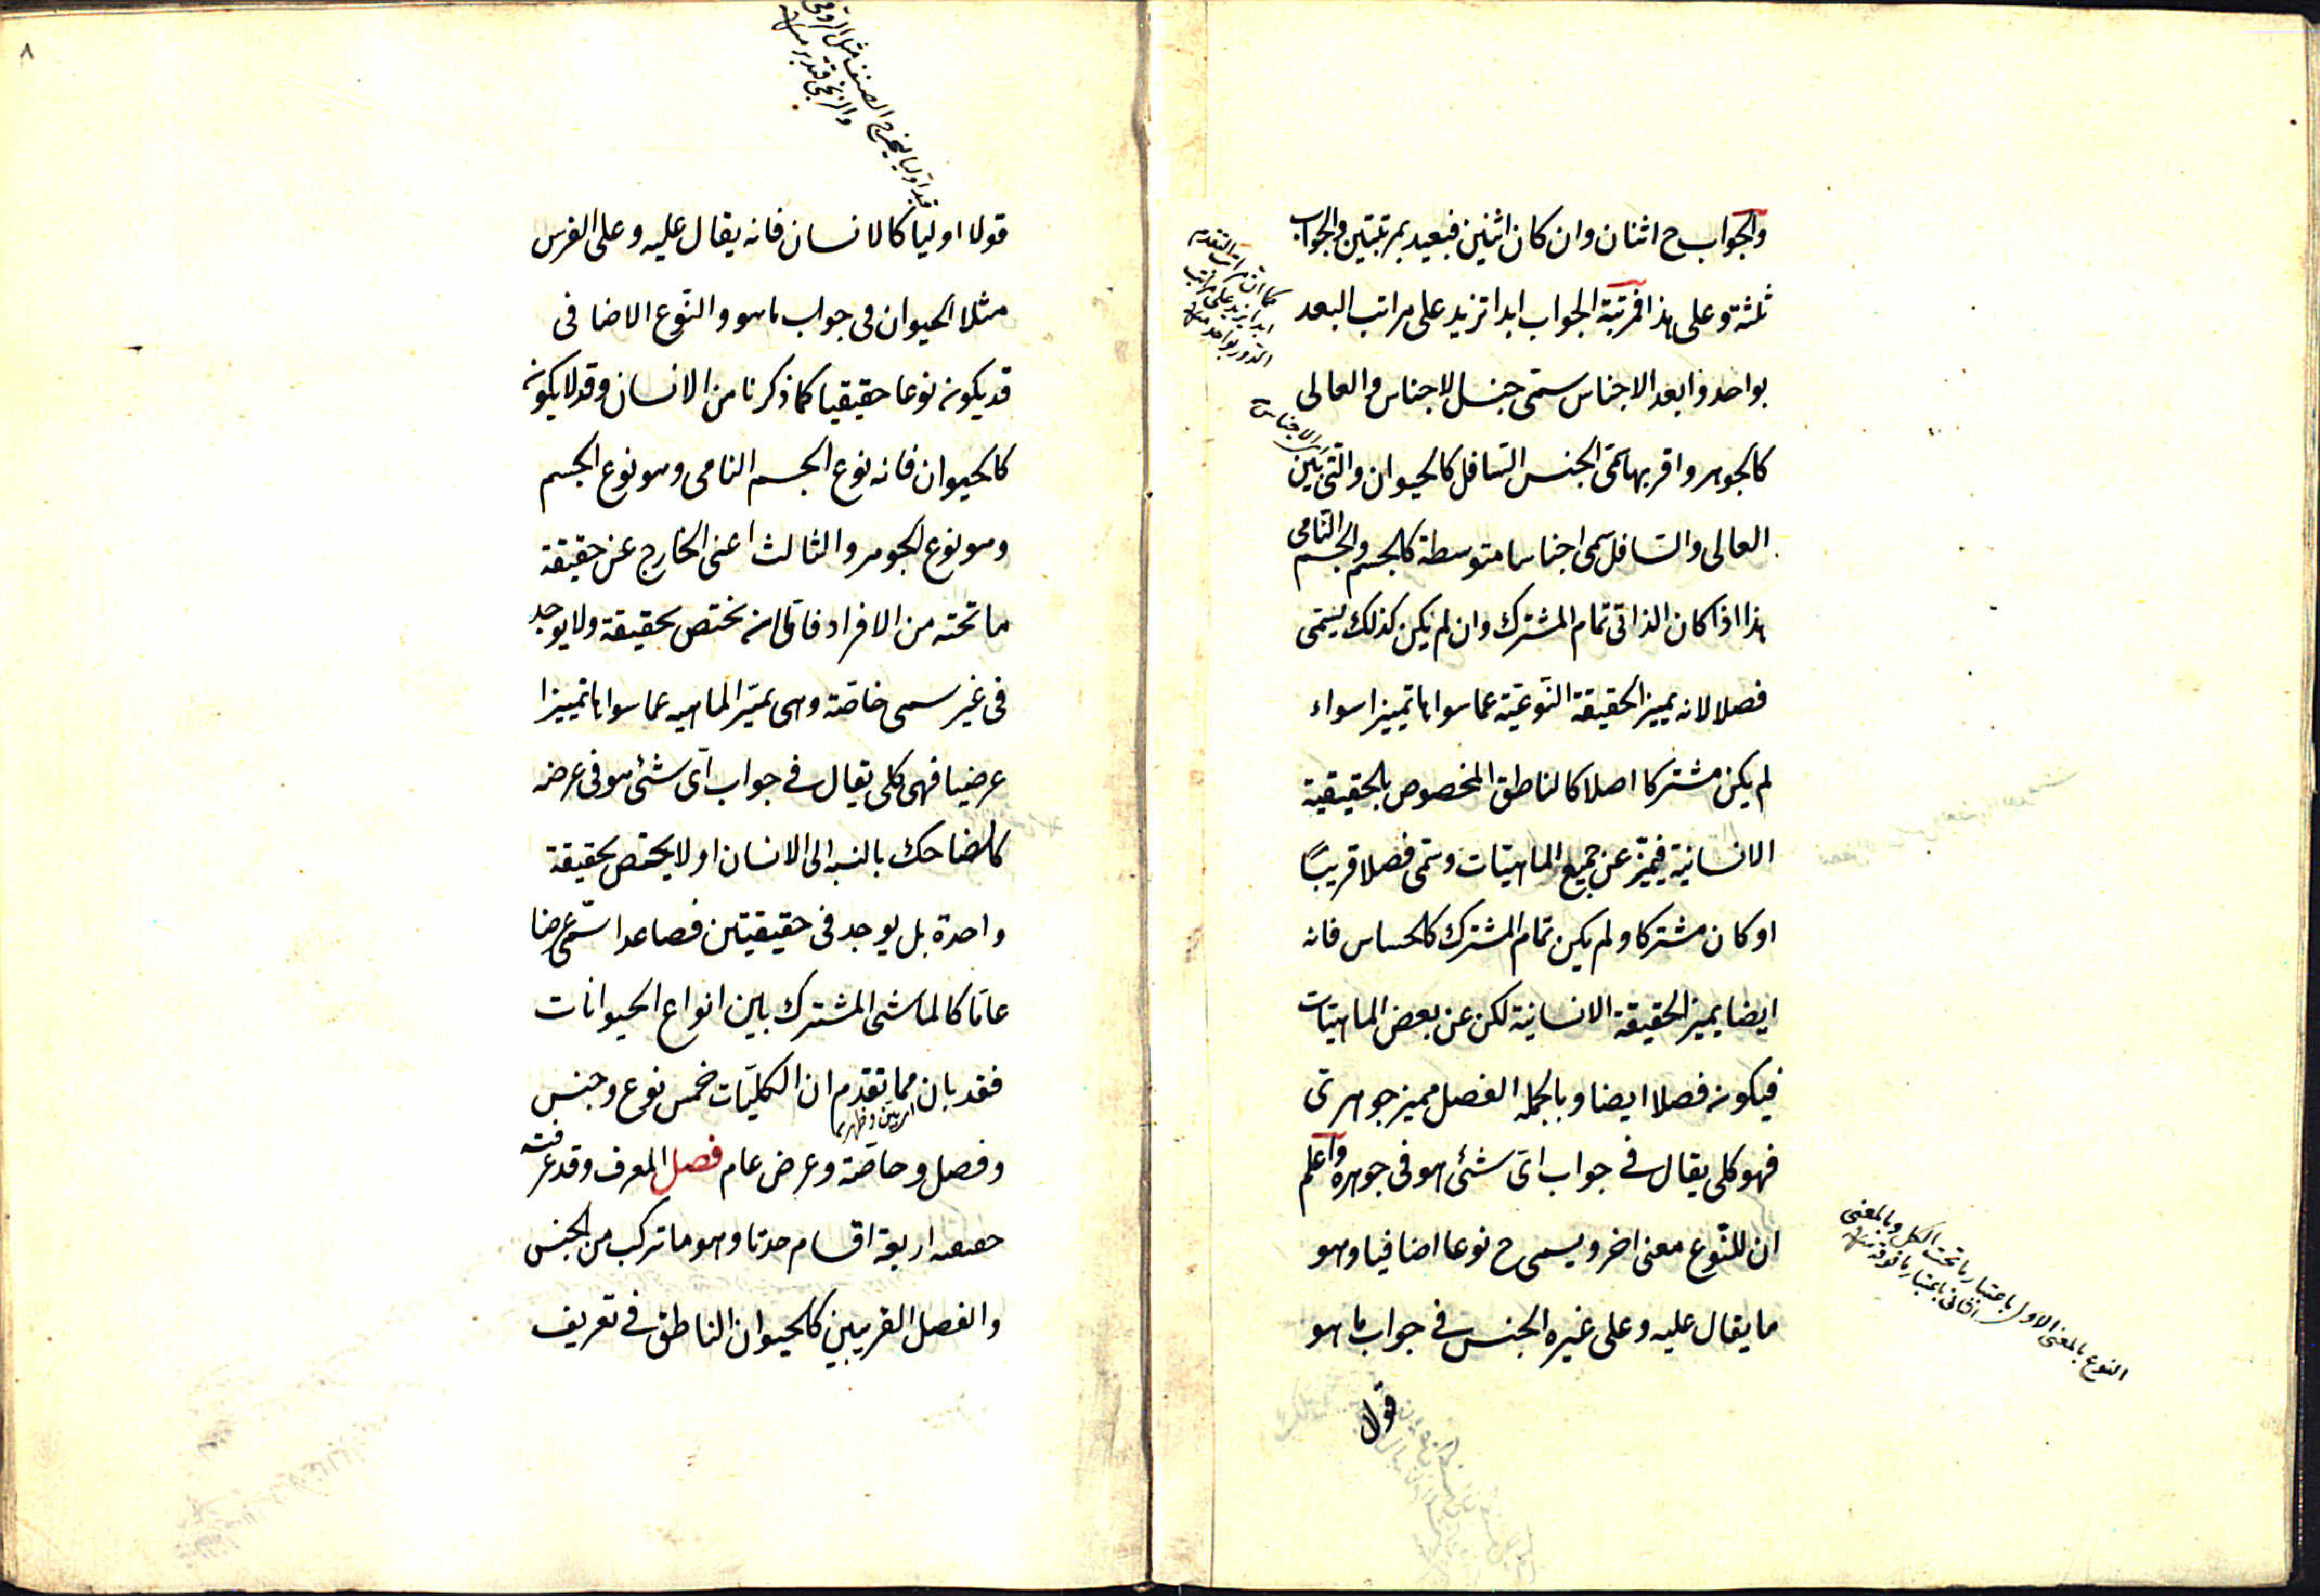 والجواب ح اثنان وان كان اثنين فبعيد بمرتبتين والجواب
ثلثة وعلى هذا فمرتبة الجواب ابدا تزيد على مراتب البعد
بواحد وابعد الاجناس سمى جنس الاجناس والعالى
كالجوهر واقربها سمى الجنس السافل كالحيوان والتى بين
العالى والسافل سمى اجناسا متوسطة كالجسم والجسم النامى
هذا اذا كان الذاتى تمام المشترك وان لم يكن كذلك يسمى
فصلا لانه يميز الحقيقة النوعية عما سواها تمييزا سواء
لم يكن مشتركا اصلا كالناطق المخصوص بالحقيقية
الانسانية فيميز عن جميع الماهيات وسمى فصلا قريبًا
او كان مشتركا ولم يكن تمام المشترك كالحساس فانه
ايضا يميز الحقيقة الانسانية لكن عن بعض الماهيات
فيكون فصلا ايضا وبالجمله الفصل مميز جوهرى
فهو كلى يقال فى جواب اى شئ هو فى جوهره واعلم
ان للنوع معنى اخر ويسمى ح نوعا اضافيا وهو
ما يقال عليه وعلى غيره الجنس فى جواب ما هو
قولا
كما ان مراتب التقدم
ابدا يزيد على مراتب
الدور بواحد منه
الاجناس
النوع بالمعنى الاول باعتبار ما تحت الكل وبالمعنى
الثانى باعتبار ما فوقه منه
٨
قيد اوليا يخرج الصنف مثل الرومى
والزنجى فتدبر منه
قولا اوليا كالانسان فانه يقال عليه وعلى الفرس
مثلا الحيوان فى جواب ما هو والنوع الاضافى
قد يكون نوعا حقيقيا كما ذكرنا من الانسان وقد لا يكون
كالحيوان فانه نوع الجسم النامى وهو نوع الجسم
وهو نوع الجوهر والثالث اعنى الخارج عن حقيقة
ما تحته من الافراد فاما ان يختص بحقيقة ولا يوجد
فى غير سمى خاصة وهى تميز الماهيه عما سواها تمييزا
عرضيا فهى كلى يقال فى جواب اى شئ هو فى عرضه
كالضاحك بالنسبه الى الانسان او لا يختص بحقيقة
واحدة بل يوجد فى حقيقيتين فصاعدا سمى عرضا
عاما كالماشى المشترك بين انواع الحيوانات
فقد بان مما تقدم ان الكليات خمس نوع وجنس
اى تبين وظهر
وفصل وخاصة وعرض عام فصل المعرف وقد عرفته
اربعة اقسام حد تا وهو ما تركب من الجنس
والفصل القريبين كالحيوان الناطق فى تعريف